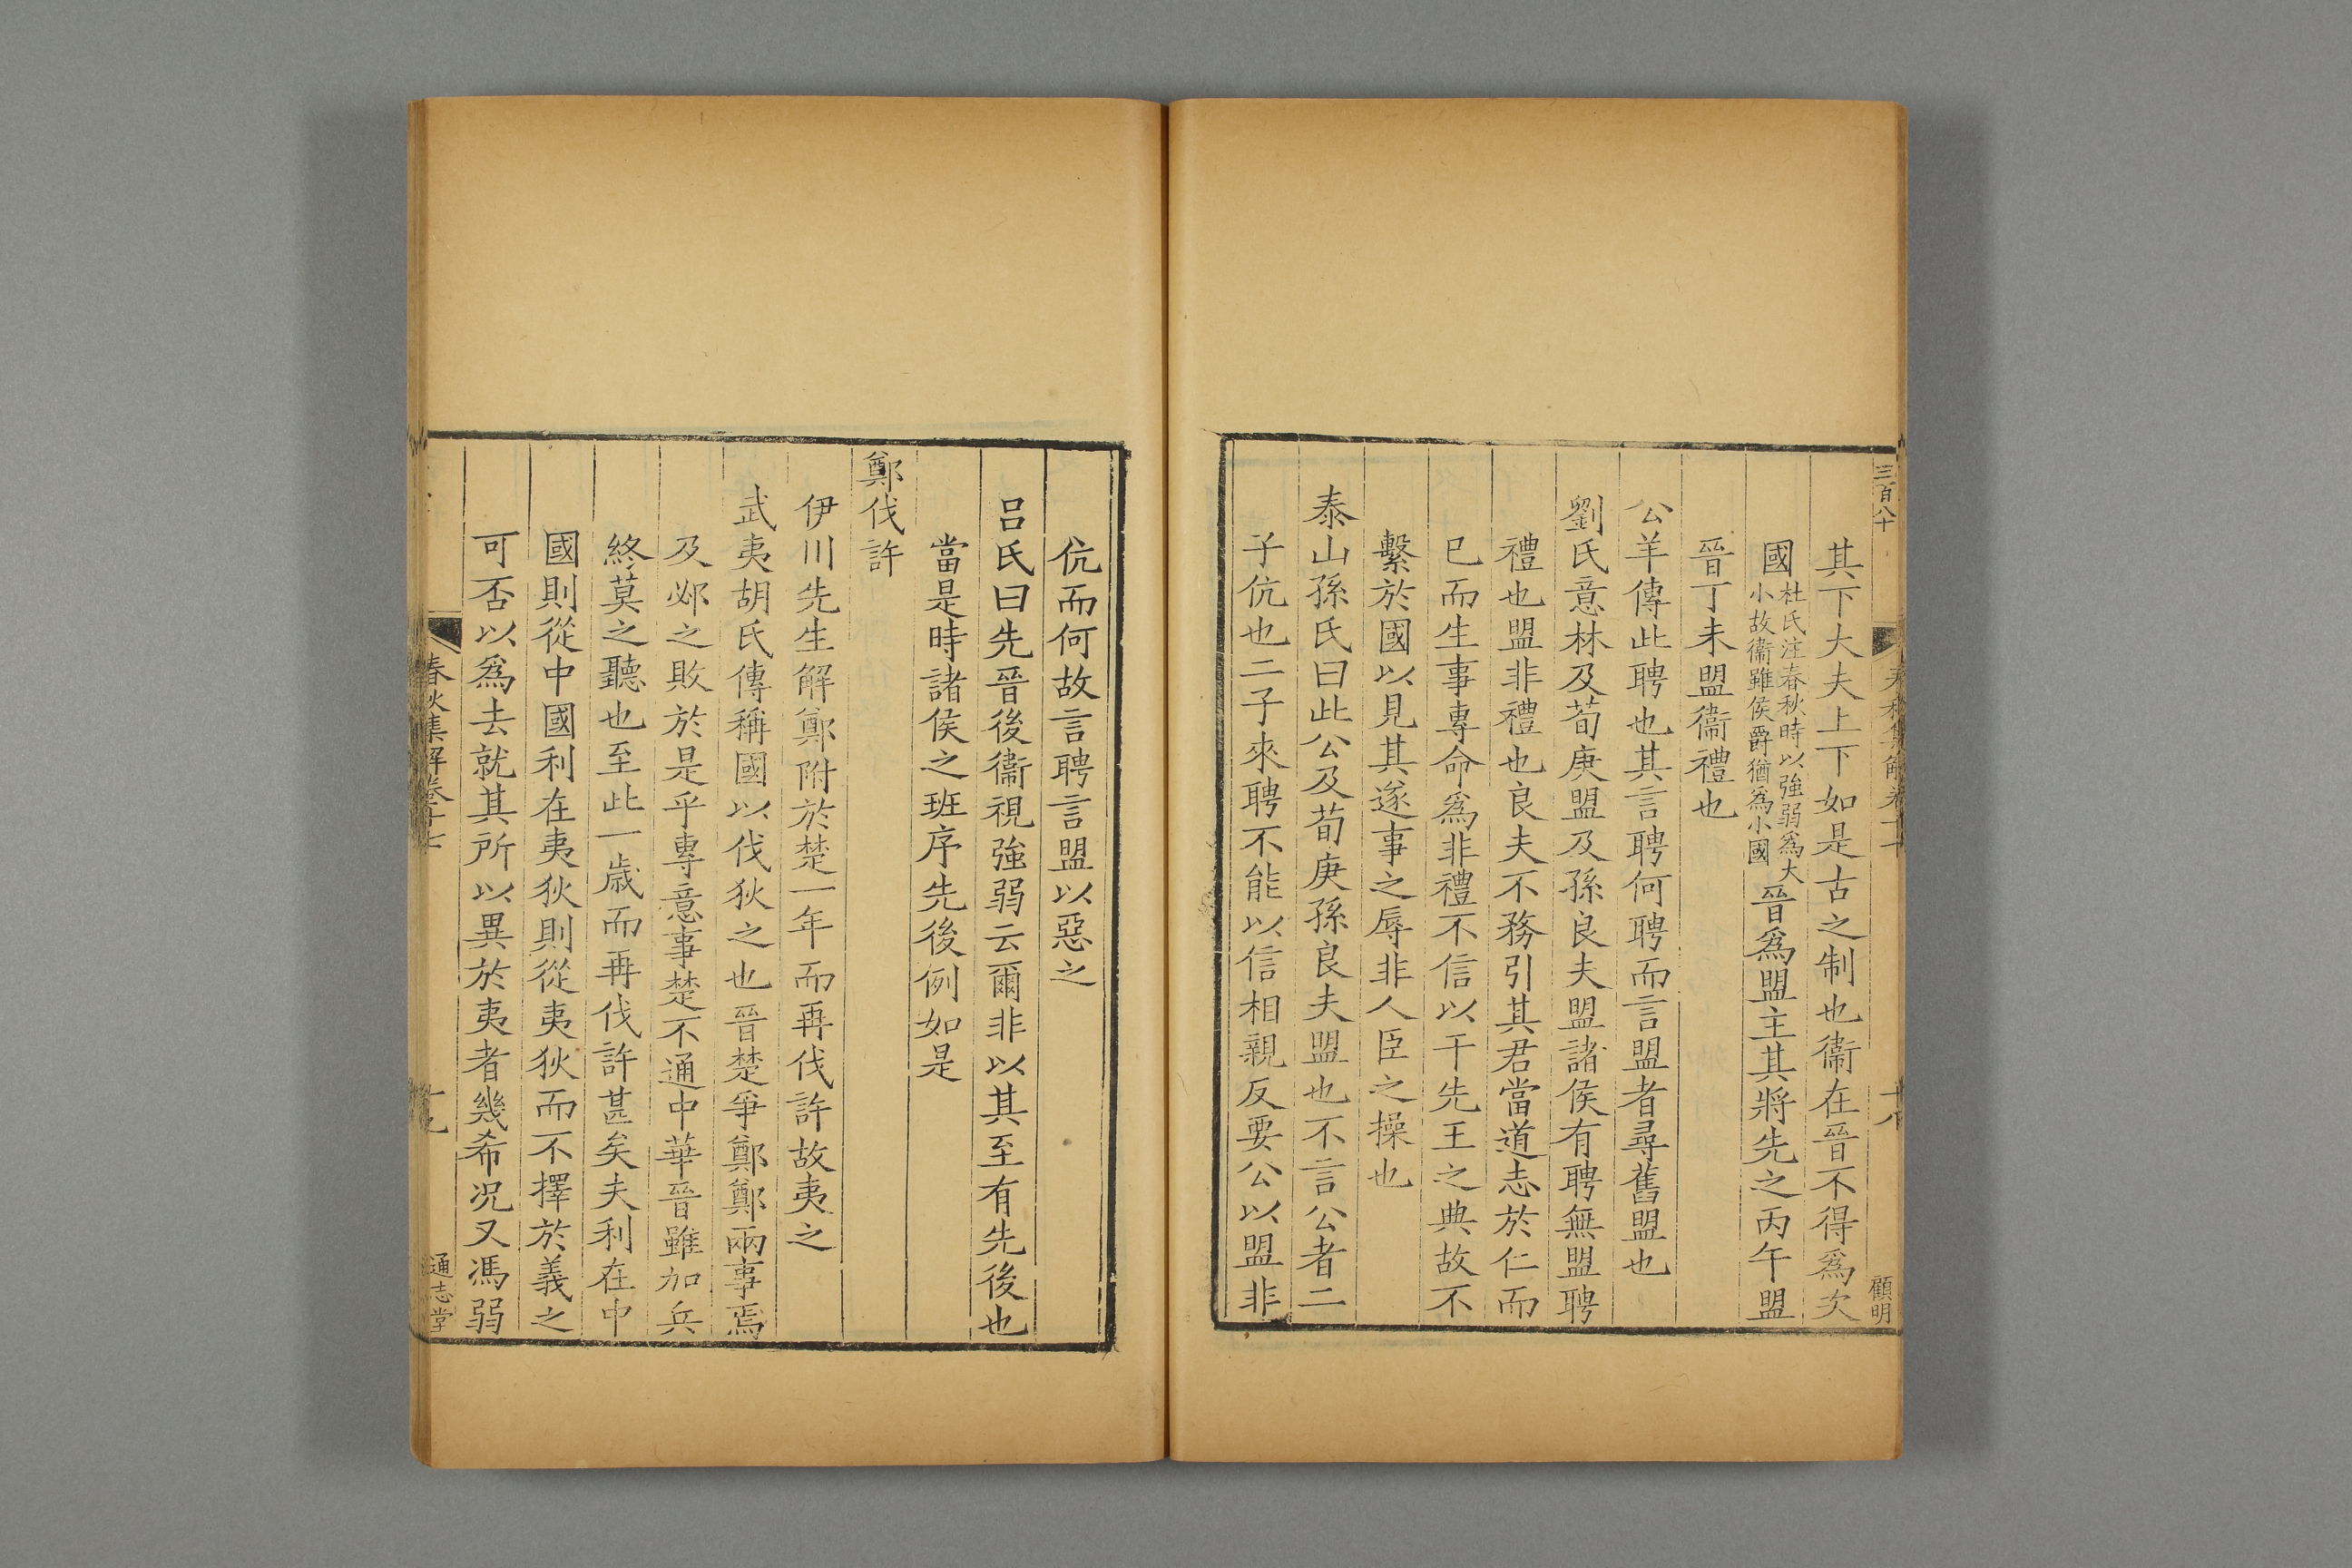 三百八十
顧明
其下大夫上下如是古之制也衞在晉不得爲次
國杜氏注春秋時以強弱爲大小故衞雖侯爵猶爲小國晉爲盟主其將先之丙午盟
晉丁未盟衞禮也
公羊傳此聘也其言聘何聘而言盟者尋舊盟也
劉氏意林及荀庚盟及孫良夫盟諸侯有聘無盟聘
禮也盟非禮也良夫不務引其君當道志於仁而
已而生事專命爲非禮不信以干先王之典故不
繫於國以見其遂事之辱非人臣之操也
泰山孫氏曰此公及荀庚孫良夫盟也不言公者二
子伉也二子來聘不能以信相親反要公以盟非
伉而何故言聘言盟以惡之
呂氏曰先晉後衞視強弱云爾非以其至有先後也
當是時諸侯之班序先後例如是
鄭伐許
伊川先生解鄭附於楚一年而再伐許故夷之
武夷胡氏傳稱國以伐狄之也晉楚爭鄭鄭兩事焉
及邲之敗於是乎專意事楚不通中華晉雖加兵
終莫之聽也至此一歲而再伐許甚矣夫利在中
國則從中國利在夷狄則從夷狄而不擇於義之
可否以爲去就其所以異於夷者幾希况又馮弱
春秋集解卷十七
通志堂